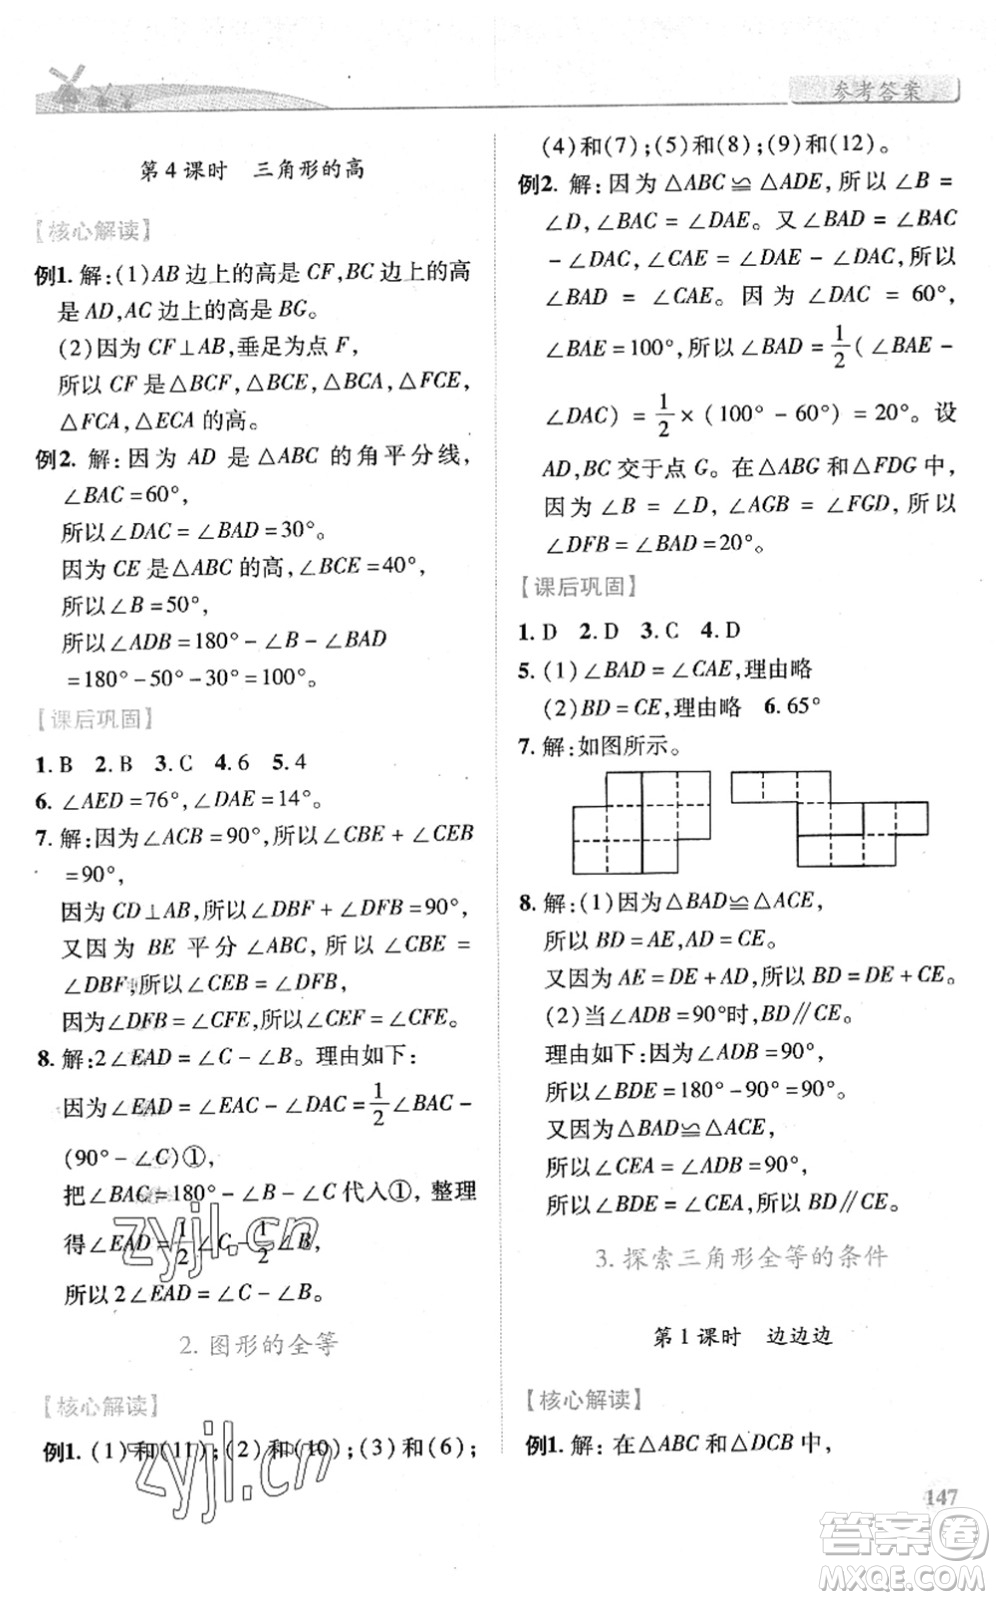 参考答案
第4课时 三角形的高
【核心解读】
例1. 解:(1)AB边上的高是CF,BC边上的高
是AD,AC边上的高是BG。
(2)因为CF⊥AB,垂足为点F,
所以CF是△BCF,△BCE,△BCA,△FCE,
△FCA,△ECA的高。
例2. 解:因为 AD 是△ABC 的角平分线,
∠BAC=60°,
所以∠DAC=∠BAD=30°。
因为CE是△ABC的高,∠BCE=40°,
所以∠B=50°,
所以∠ADB=180°-∠B-∠BAD
=180°-50°-30°=100°。
【课后巩固】
1. B 2. B 3. C 4. 6 5. 4
6. ∠AED=76°,∠DAE=14°。
7. 解:因为∠ACB=90°,所以∠CBE+∠CEB
=90°,
因为CD⊥AB,所以∠DBF+∠DFB=90°,
又因为 BE 平分∠ABC,所以∠CBE=
∠DBF,所以∠CEB=∠DFB,
因为∠DFB=∠CFE,所以∠CEF=∠CFE。
8. 解:2∠EAD=∠C-∠B。理由如下:
因为∠EAD=∠EAC-∠DAC=1/2∠BAC-
(90°-∠C)①,
把∠BAC=180°-∠B-∠C代入①,整理
得∠EAD=1/2∠C-1/2∠B,
所以2∠EAD=∠C-∠B。
2. 图形的全等
【核心解读】
例1. (1)和(11);(2)和(10);(3)和(6);
(4)和(7);(5)和(8);(9)和(12)。
例2. 解:因为△ABC≌△ADE,所以∠B=
∠D,∠BAC=∠DAE。又∠BAD=∠BAC
-∠DAC,∠CAE=∠DAE-∠DAC,所以
∠BAD=∠CAE。因为∠DAC=60°,
∠BAE=100°,所以∠BAD=1/2(∠BAE-
∠DAC)=1/2×(100°-60°)=20°。设
AD,BC交于点G。在△ABG和△FDG中,
因为∠B=∠D,∠AGB=∠FGD,所以
∠DFB=∠BAD=20°。
【课后巩固】
1. D 2. D 3. C 4. D
5. (1)∠BAD=∠CAE,理由略
(2)BD=CE,理由略 6. 65°
7. 解:如图所示。
8. 解:(1)因为△BAD≌△ACE,
所以BD=AE,AD=CE。
又因为AE=DE+AD,所以BD=DE+CE。
(2)当∠ADB=90°时,BD∥CE。
理由如下:因为∠ADB=90°,
所以∠BDE=180°-90°=90°。
又因为△BAD≌△ACE,
所以∠CEA=∠ADB=90°,
所以∠BDE=∠CEA,所以BD∥CE。
3. 探索三角形全等的条件
第1课时 边边边
【核心解读】
例1. 解:在△ABC和△DCB中,
147
zyjl.cn
zyjl.cn
答案卷
MXQE.COM